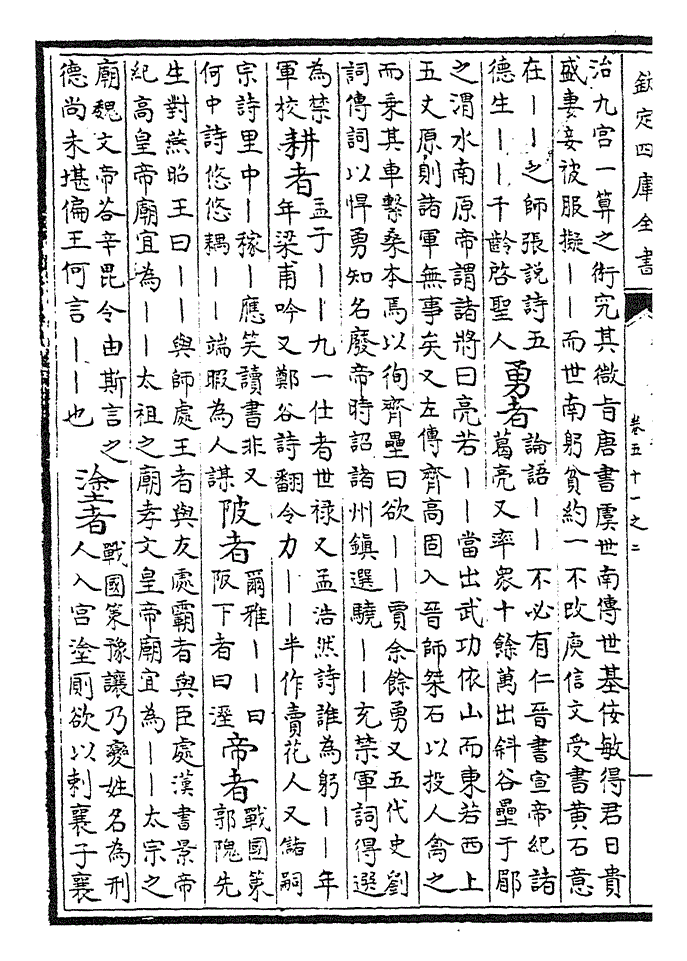 欽定四庫全書
卷五十一之二
治九宫一算之術究其微㫖唐書虞世南傳世基佞敏得君日貴
盛妻妾被服擬｜｜而世南躬貧約一不改庾信文受書黄石意
在｜｜之師張説詩五
德生｜｜千齡啓聖人
勇者
論語｜｜不必有仁晉書宣帝紀諸
葛亮又率衆十餘萬出斜谷壘于郿
之渭水南原帝謂諸將曰亮若｜｜當出武功依山而東若西上
五丈原則諸軍無事矣又左傳齊高固入晉師桀石以投人禽之
而乘其車繫桑本焉以徇齊壘曰欲｜｜賈余餘勇又五代史劉
詞傳詞以悍勇知名廢帝時詔諸州鎮選驍｜｜充禁軍詞得選
為禁
軍校
耕者
孟子｜｜九一仕者世禄又孟浩然詩誰為躬｜｜年
年梁甫吟又鄭谷詩翻令力｜｜半作賣花人又儲嗣
宗詩里中｜稼｜應笑讀書非又
何中詩悠悠耦｜｜端暇為人謀
陂者
爾雅｜｜曰
阪下者曰溼
帝者
戰國策
郭隗先
生對燕昭王曰｜｜與師處王者與友處霸者與臣處漢書景帝
紀高皇帝廟宜為｜｜太祖之廟孝文皇帝廟宜為｜｜太宗之
廟魏文帝荅辛毘令由斯言之
德尚未堪偏王何言｜｜也
塗者
戰國策豫讓乃變姓名為刑
人入宫塗厠欲以刺襄子襄